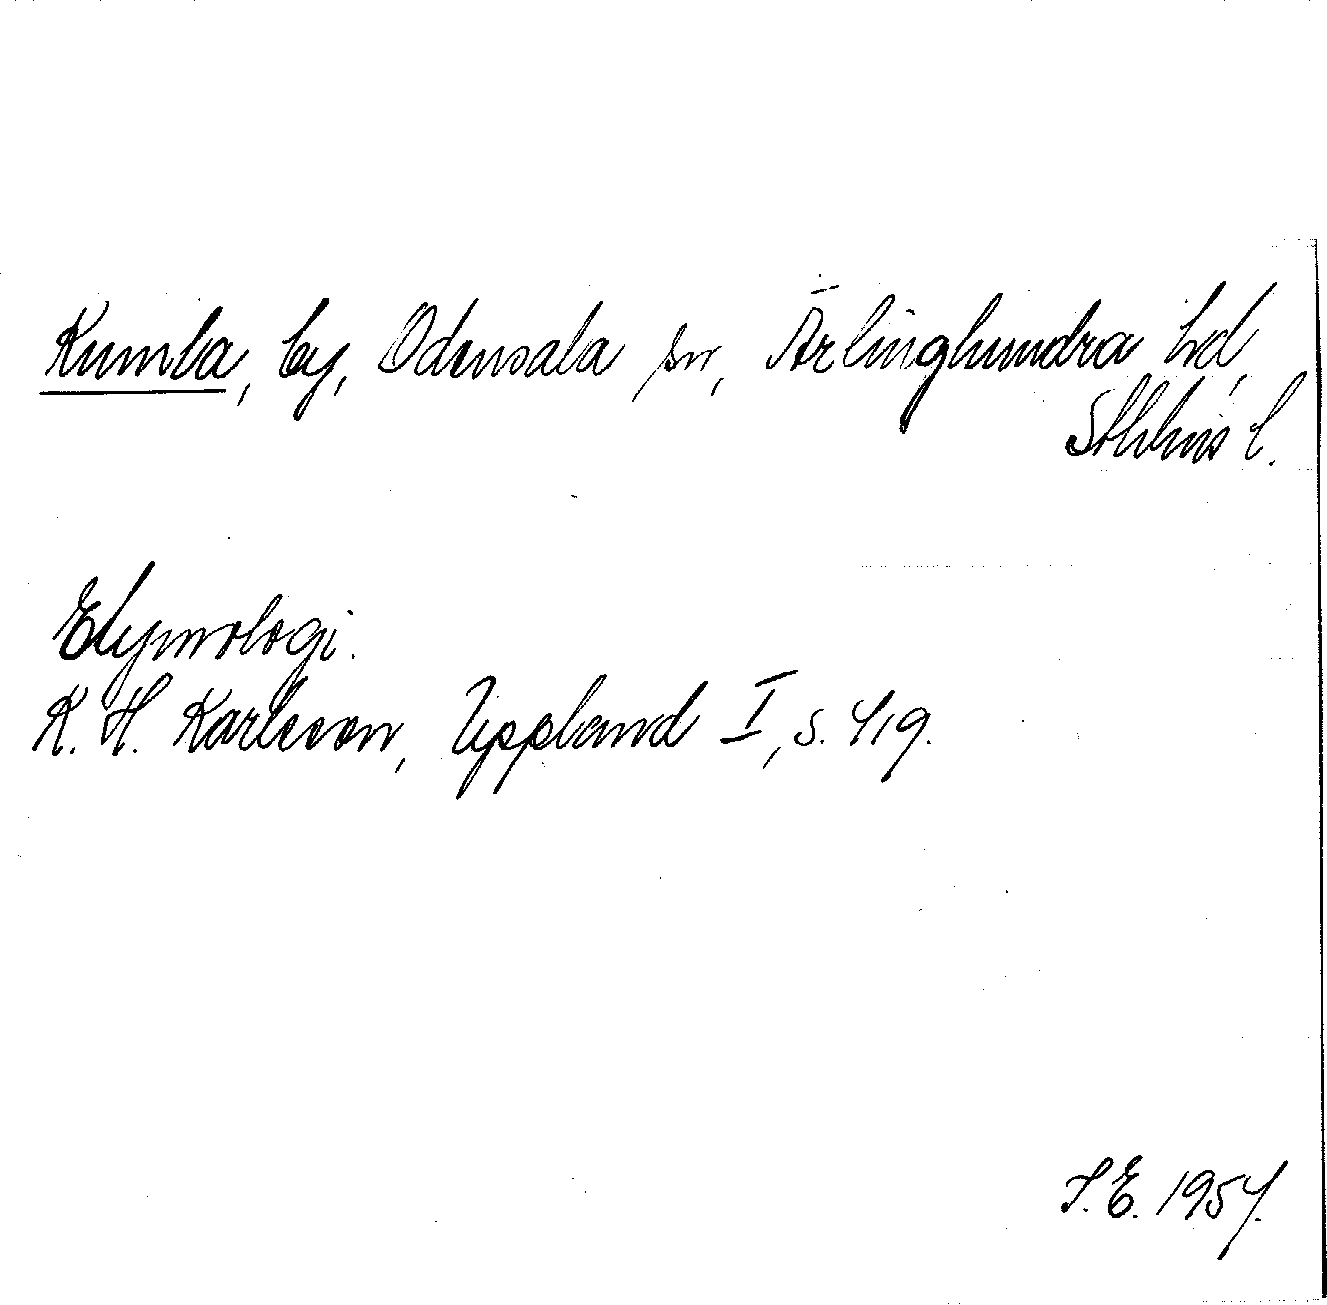 Kumla, by, Odensala sn, Ärlinghundra hd,
Sthlms l.
Etymologi.
K. H. Karlsson, Uppland I, s. 419.
S.E. 1954.